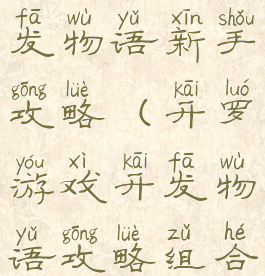 fā wù yǔ xīn shǒu
发物语新手
gōng lüè kāi luó
攻略（开罗
yóu xì kāi fā wù
游戏开发物
yǔ gōng lüè zǔ hé
语攻略组合